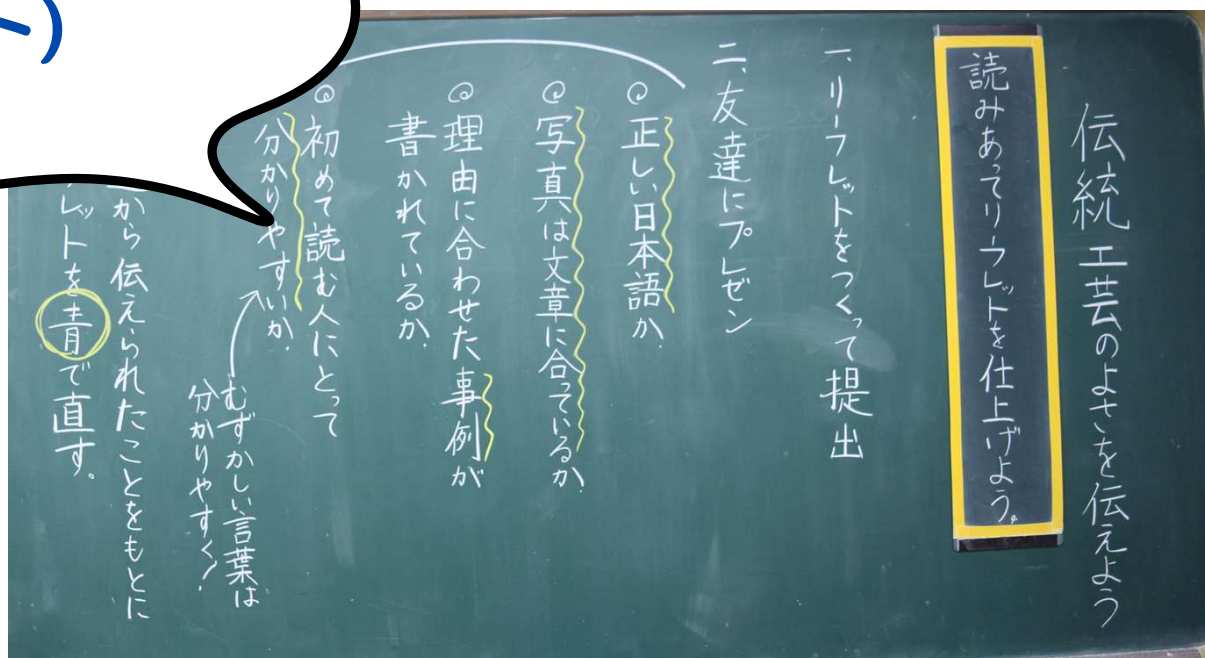 伝統工芸のよさを伝えよう
読みあってリーフレットを仕上げよう。
一、リーフレットをつくって提出
二、友達にプレゼン
◎正しい日本語か
◎写真は文章に合っているか
◎理由に合わせた事例が
書かれているか
◎初めて読む人にとって
分かりやすいか
むずかしい言葉は
分かりやすく!
から伝えられたことをもとに
レットを青で直す。